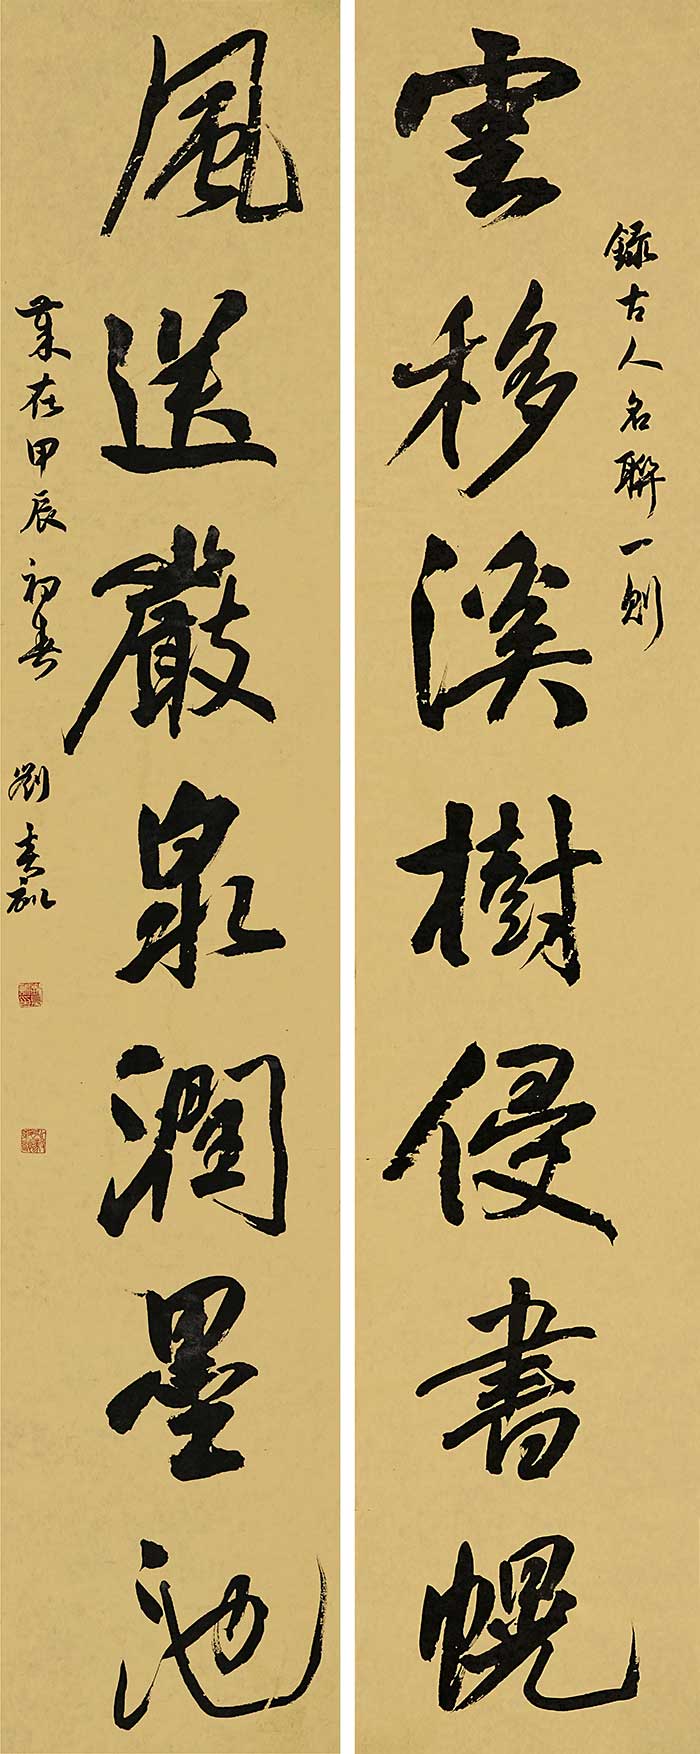 録古人名聯一則
雲移溪樹侵書幌
風送巖泉潤墨池
歲在甲辰初春 劉